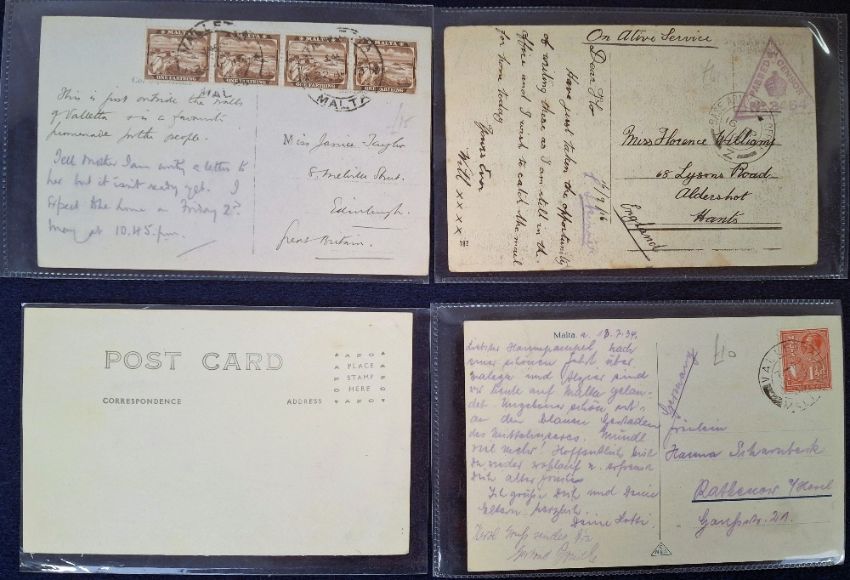 MALTA MALTA MALTA MALTA
ONE FARTHING ONE FARTHING ONE FARTHING ONE FARTHING
MALTA
This is just outside the walls
of Valletta & is a favourite
promenade for the people.
Tell Mother I am writing a letter to
her but it isn't ready yet. I
expect to be home on Friday 2nd
May at 10.45 p.m.
£15
Miss Janice Taylor
8, Melville Street,
Edinburgh.
Great Britain.
On Ative Service
Dear Flo
Have just taken the opportunity
of writing these as I am still in the
Office and I wish to catch the mail
for home today
Yours Ever
Will xxxx
PASSED BY CENSOR
Miss Florence Williams
68 Lysons Road
Aldershot
Hants
England
POST CARD
CORRESPONDENCE
ADDRESS
PLACE
STAMP
HERE
Malta. a. 13.7.34.
nach
einer schönen Fahrt über
Malaga und Algier sind
wir heute auf Malta gelan-
det.
an den blauen Gestaden
des Mittelmeeres. Mündl.
viel mehr! Hoffentlich bist
Du wieder wohlauf u.
Dich alter
Ich grüße Dich und Deine
Eltern herzlich
Deine Lotti.
Germany
£10
VALLETTA
Fräulein
Hanna
Rathenow / Havel